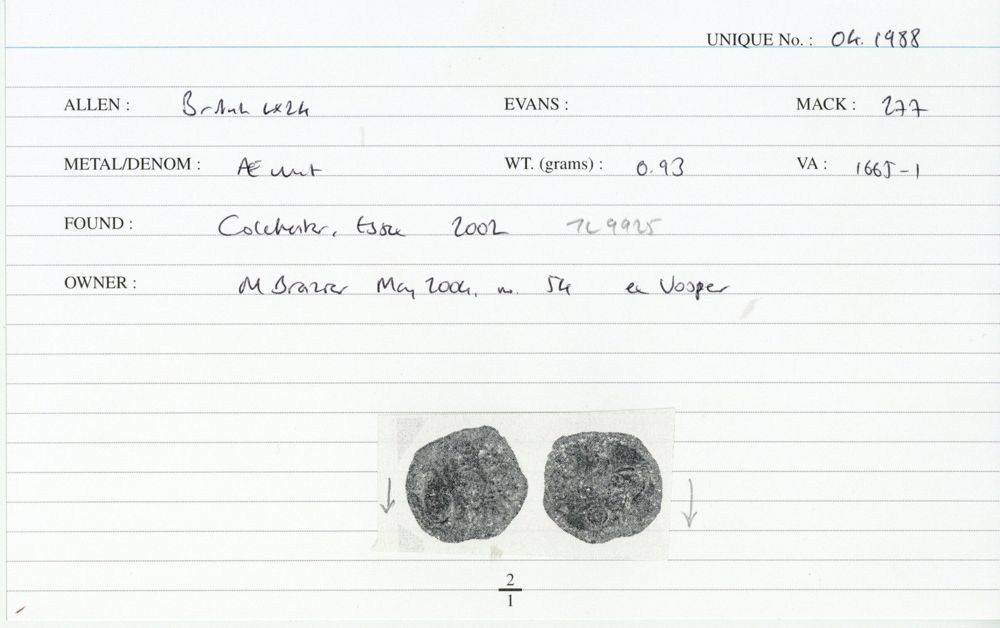 UNIQUE No. : 04. 1988
ALLEN : British LX24 EVANS : MACK : 277
METAL/DENOM : Æ unit WT. (grams) : 0.93 VA : 1665-1
FOUND : Colchester, Essex 2002 TL 9925
OWNER : M Brazier May 2004, no. 54 ex Vosper
2
1